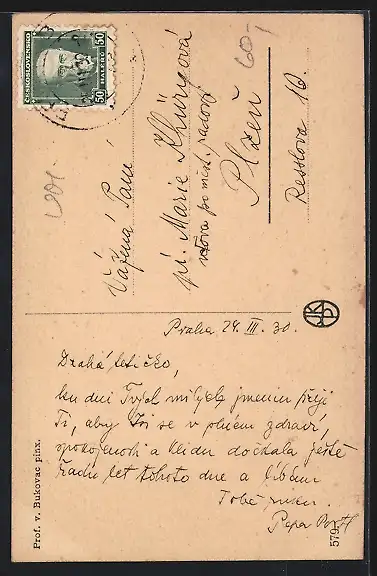 ČESKOSLOVENSKO
50 HALÉŘŮ 50
60,-
Vážená Paní
pí. Marie
vdova po měst. radovi
Plzeň
Resslova 10.
Praha 24. III. 30.
Drahá tetičko,
ku dni Tvých milých jmenin přeji
Ti, aby jsi se v plném zdraví,
spokojenosti a klidu dočkala ještě
řadu let tohoto dne a líbám
Tobě ruku.
Pepa
Prof. v. Bukovac pinx.
579